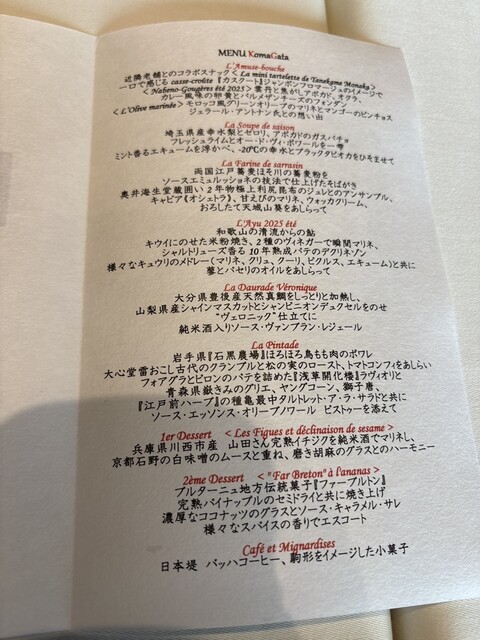 MENU KomaGata
L'Amuse-bouche
近隣老舗とのコラボスナック < La mini tartelette de Tanekame Monaka >
一口で感じる casse-croûte 『カスクート』ジャンボンフロマージュのイメージで
< Nabeno-Gougères été 2025 > 雲丹と焦がしアボカド、オクラ、
カレー風味の卵黄とパルメザンチーズのフォンダン
< L'Olive marinée > モロッコ風グリーンオリーブのマリネとマンゴーのピンチョス
ジェラール・アントナン氏との思い出
La Soupe de saison
埼玉県産幸水梨とゼロリ、アボカドのガスパチョ
フレッシュライムとオー・ド・ヴィ・ポワールを一雫
ミント香るエキュームを浮かべ、-20℃の幸水とブラックタピオカをひそませて
La Farine de sarrasin
両国江戸蕎麦ほそ川の蕎麦粉を
ソースエミュルッショネの技法で仕上げたそばがき
奥井海生堂蔵囲い2年物極上利尻昆布のジュレとのアンサンブル、
キャビア《オシェトラ》、甘えびのマリネ、ウォッカクリーム、
おろしたて天城山葵をあしらって
L'Ayu 2025 été
和歌山の清流からの鮎
キウイにのせた米粉焼き、2種のヴィネガーで瞬間マリネ、
シャルトリューズ香る10年熟成パテのデクリネゾン
様々なキュウリのメドレー(マリネ、クリュ、クーリ、ピクルス、エキューム)と共に
蓼とパセリのオイルをあしらって
La Daurade Véronique
大分県豊後産天然真鯛をしっとりと加熱し、
山梨県産シャインマスカットとシャンピニオンデュクセルをのせ
"ヴェロニック"仕立てに
純米酒入りソース・ヴァンブラン・レジェール
La Pintade
岩手県『石黒農場』ほろほろ鳥もも肉のポワレ
大心堂雷おこし古代のクランブルと松の実のロースト、トマトコンフィをあしらい
フォアグラとピロンのパテを詰めた『浅草開化楼』ラヴィオリと
青森県嶽きみのグリエ、ヤングコーン、獅子唐、
『江戸前ハーブ』の種亀最中タルトレット・ア・ラ・サラドと共に
ソース・エッソンス・オリーブノワール ピストゥーを添えて
1er Dessert < Les Figues et déclinaison de sesame >
兵庫県川西市産 山田さん完熟イチジクを純米酒でマリネし、
京都石野の白味噌のムースと重ね、磨き胡麻のグラスとのハーモニー
2ème Dessert < " Far Breton" à l'ananas >
ブルターニュ地方伝統菓子『ファーブルトン』
完熟パイナップルのセミドライと共に焼き上げ
濃厚なココナッツのグラスとソース・キャラメル・サレ
様々なスパイスの香りでエスコート
Café et Mignardises
日本堤 バッハコーヒー、駒形をイメージした小菓子